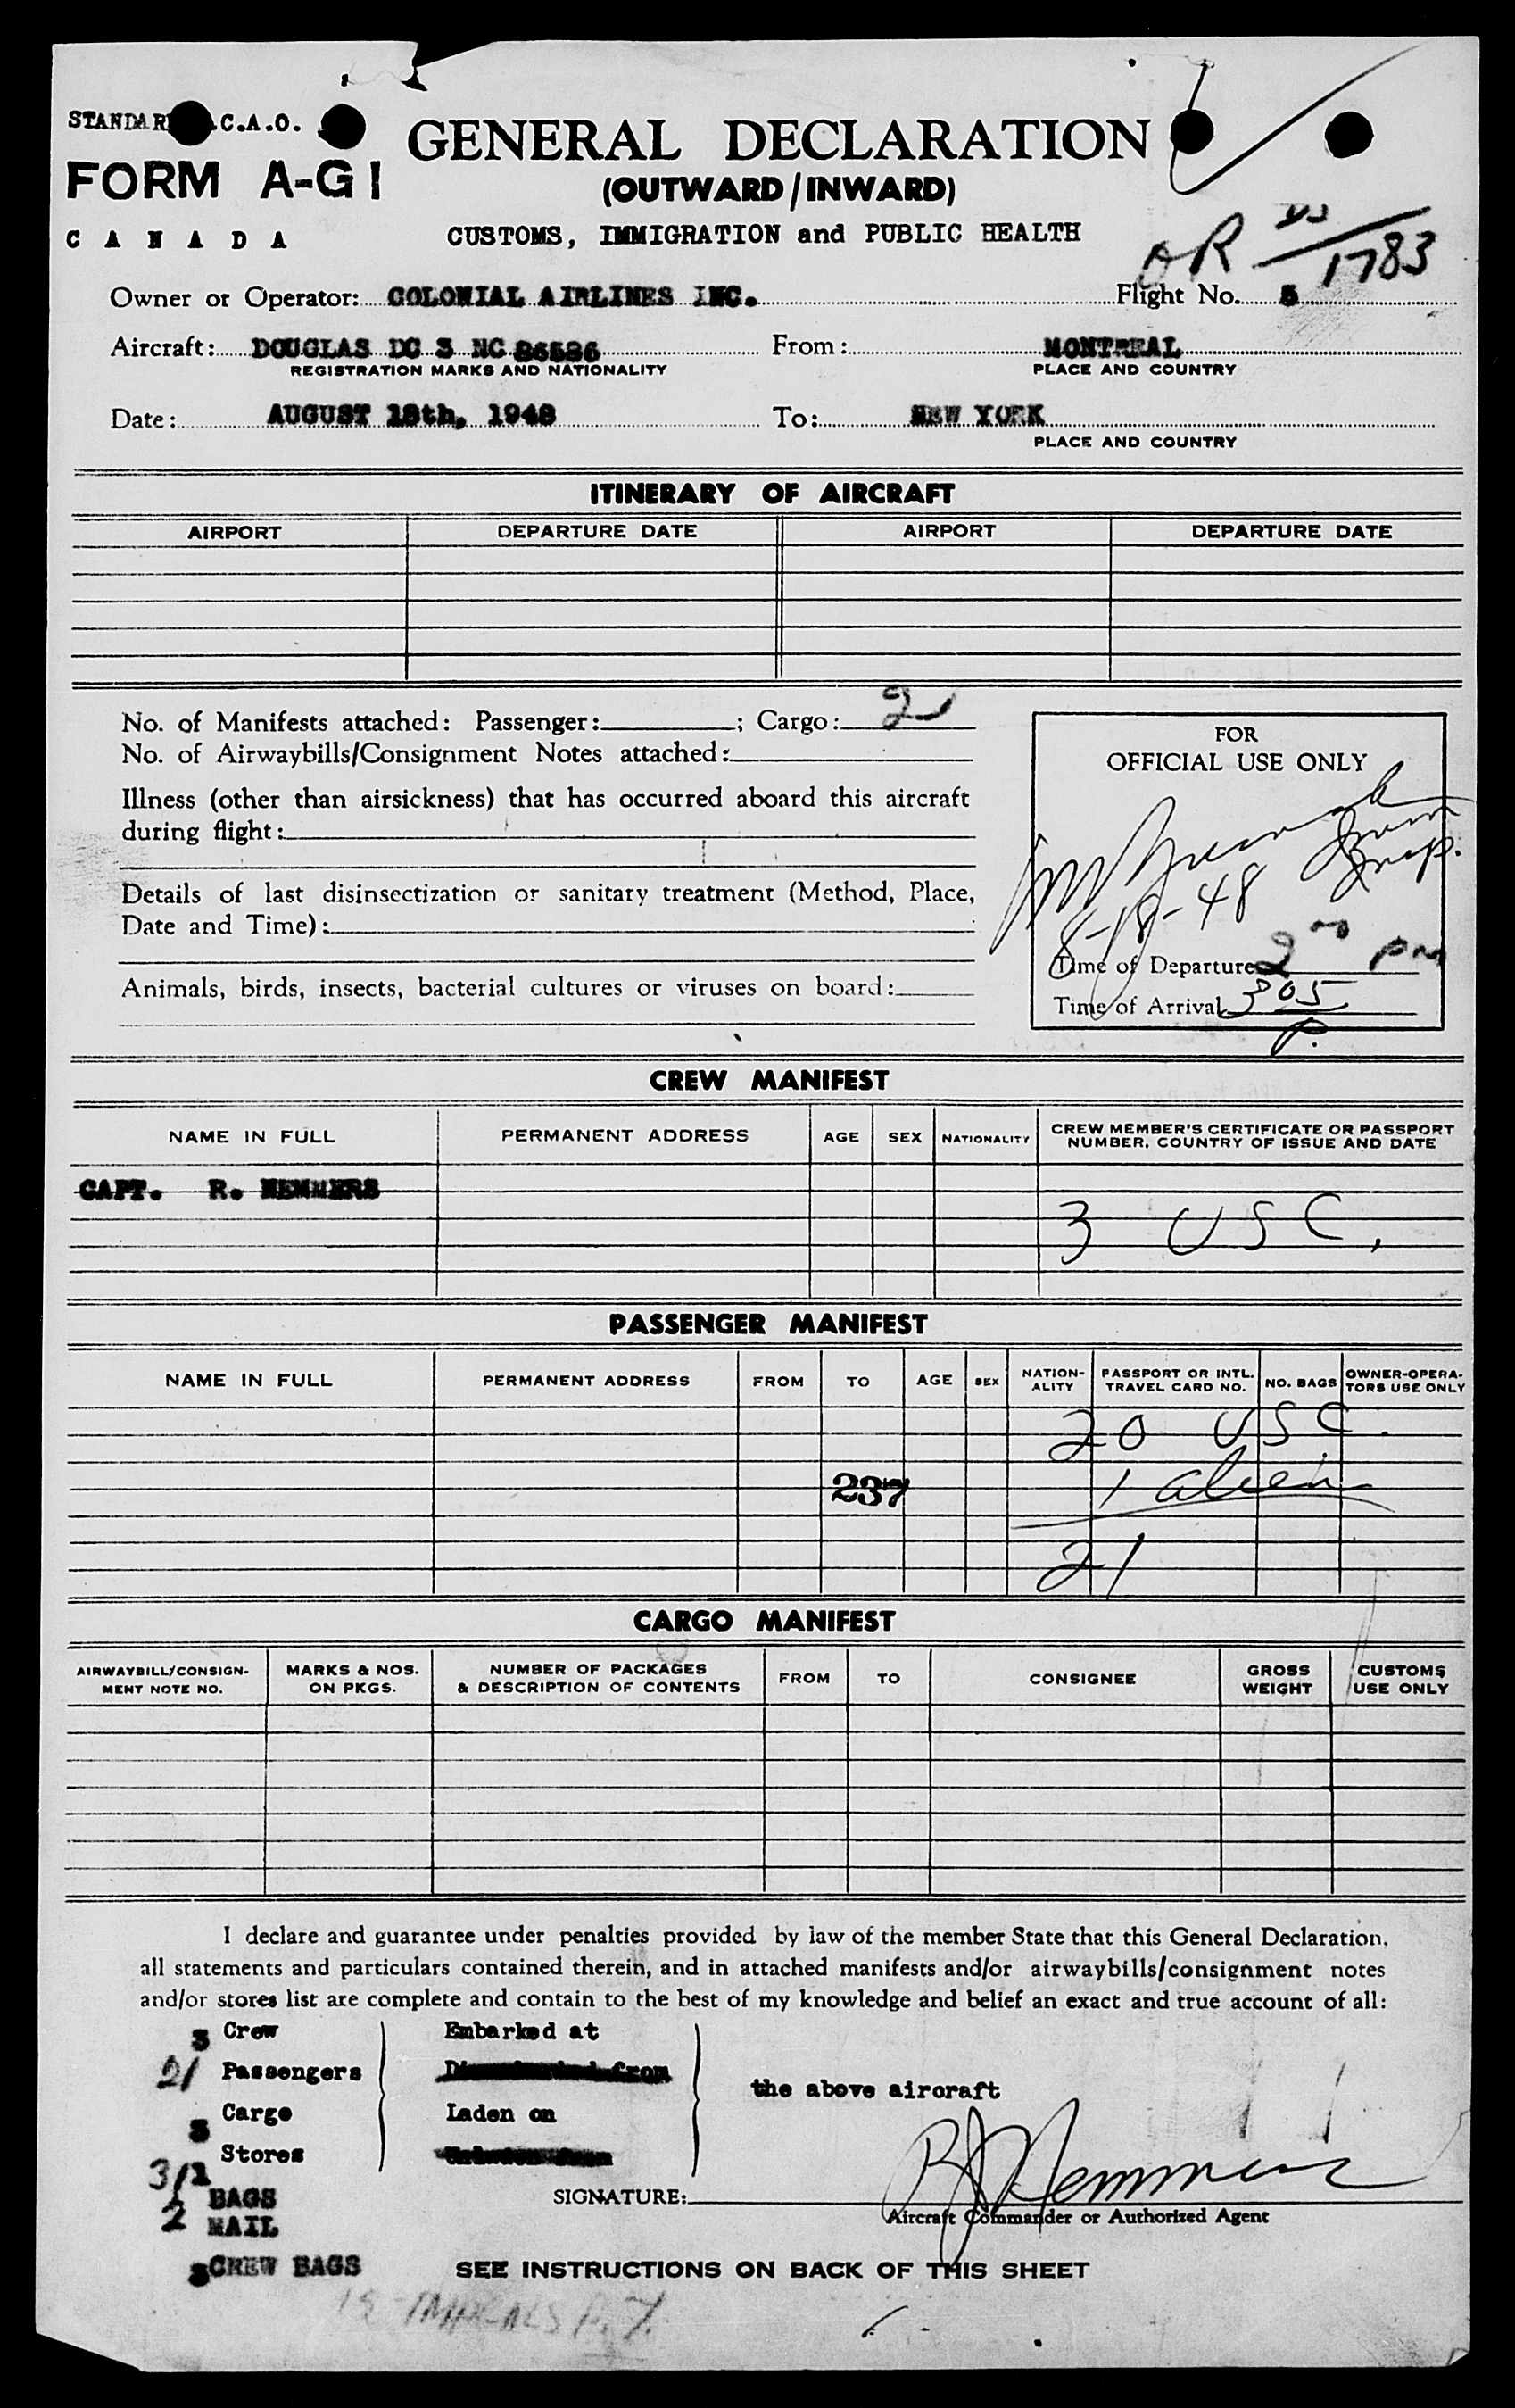 STANDARD I.C.A.O.
FORM A-G1
CANADA
GENERAL DECLARATION
(OUTWARD/INWARD)
CUSTOMS, IMMIGRATION and PUBLIC HEALTH
1783
Owner or Operator: COLONIAL AIRLINES INC. Flight No. 5
Aircraft: DOUGLAS DC 3 NC 86586 From: MONTREAL
REGISTRATION MARKS AND NATIONALITY PLACE AND COUNTRY
Date: AUGUST 18th, 1948 To: NEW YORK
PLACE AND COUNTRY
ITINERARY OF AIRCRAFT
AIRPORT DEPARTURE DATE AIRPORT DEPARTURE DATE
No. of Manifests attached: Passenger: ; Cargo: 2
No. of Airwaybills/Consignment Notes attached:
Illness (other than airsickness) that has occurred aboard this aircraft
during flight:
Details of last disinsectization or sanitary treatment (Method, Place,
Date and Time):
Animals, birds, insects, bacterial cultures or viruses on board:
FOR
OFFICIAL USE ONLY
8-18-48
Time of Departure 2 00 pm
Time of Arrival 3 05
P.
CREW MANIFEST
NAME IN FULL PERMANENT ADDRESS AGE SEX NATIONALITY CREW MEMBER'S CERTIFICATE OR PASSPORT
NUMBER, COUNTRY OF ISSUE AND DATE
CAPT. R. NEMMERS
3 USC.
PASSENGER MANIFEST
NAME IN FULL PERMANENT ADDRESS FROM TO AGE SEX NATION-
ALITY PASSPORT OR INTL.
TRAVEL CARD NO. NO. BAGS OWNER-OPERA-
TORS USE ONLY
20 USC.
237 1 alien
21
CARGO MANIFEST
AIRWAYBILL/CONSIGN-
MENT NOTE NO. MARKS & NOS.
ON PKGS. NUMBER OF PACKAGES
& DESCRIPTION OF CONTENTS FROM TO CONSIGNEE GROSS
WEIGHT CUSTOMS
USE ONLY
I declare and guarantee under penalties provided by law of the member State that this General Declaration,
all statements and particulars contained therein, and in attached manifests and/or airwaybills/consignment notes
and/or stores list are complete and contain to the best of my knowledge and belief an exact and true account of all:
3 Crew Embarked at
21 Passengers Disembarked from
the above aircraft
3 Cargo Laden on
Stores
BAGS
2 MAIL
SIGNATURE: R J Nemmers
Aircraft Commander or Authorized Agent
3 CREW BAGS
SEE INSTRUCTIONS ON BACK OF THIS SHEET